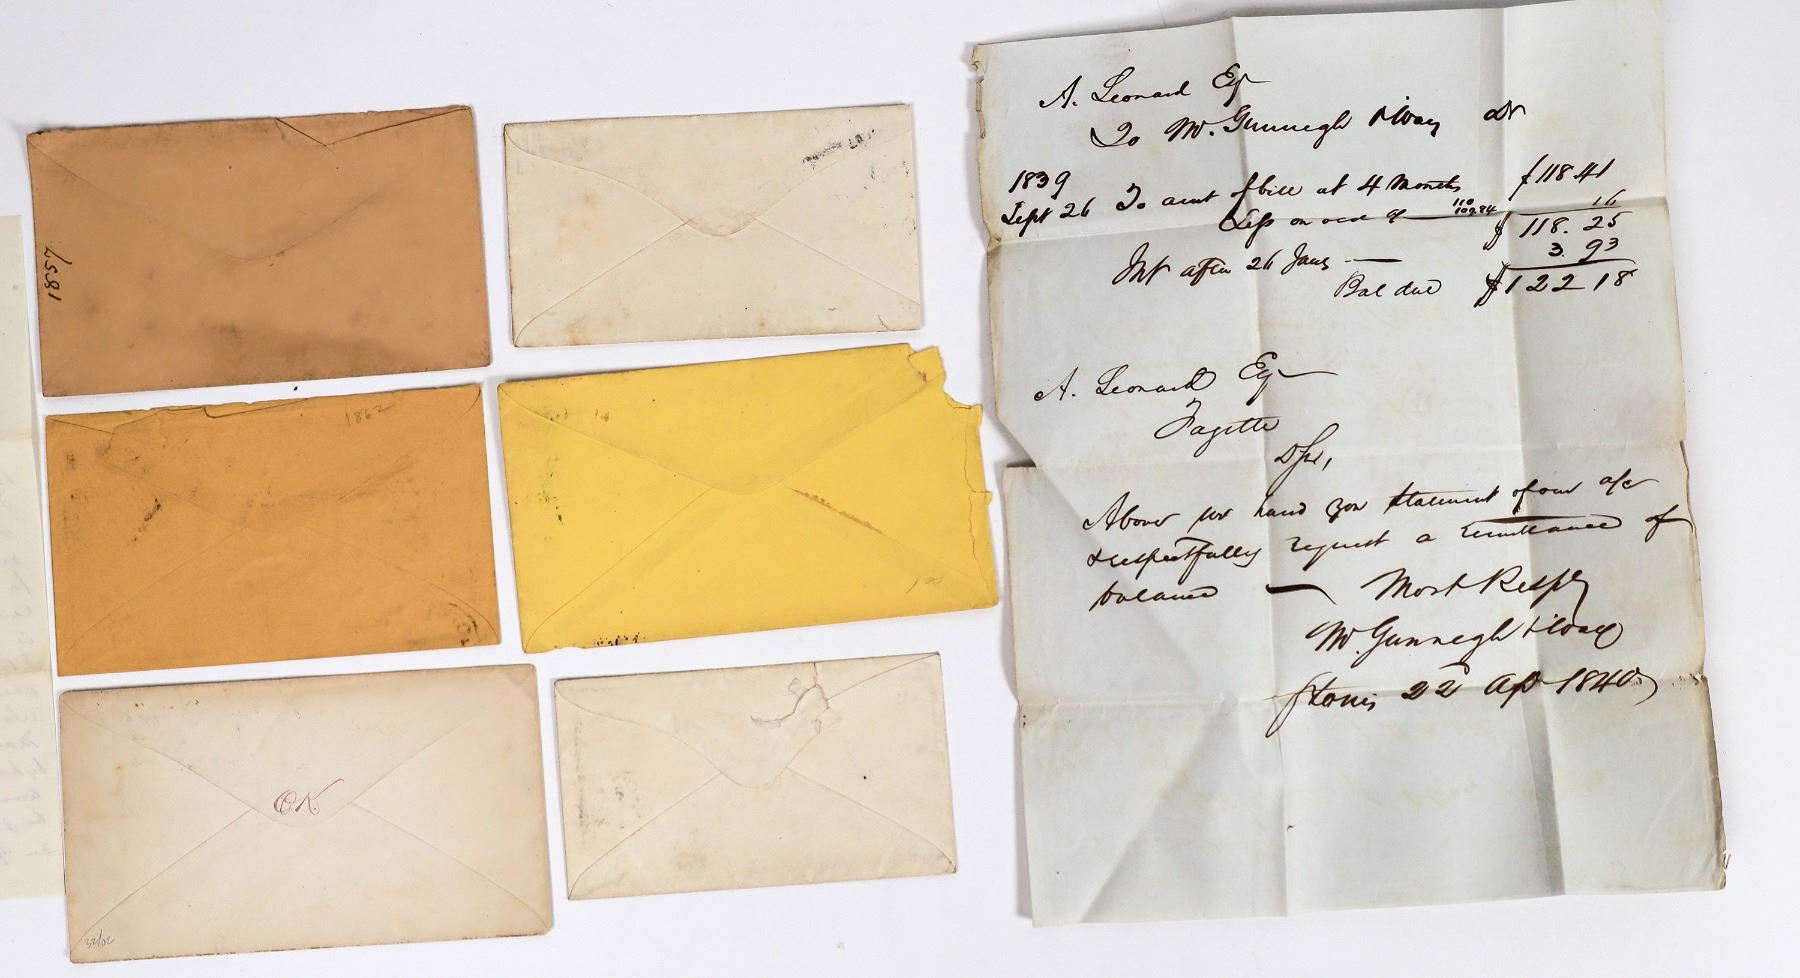 1857
1862
O.K.
A. Leonard Esqr
To McGunnegle & Way Dr
1839
Sept 26 To amt of bill at 4 Months $118.41
Less on 16
$118.25
Int after 26 Jany — 3.93
Bal due $122 18
A. Leonard Esqr
Fayette
D Sir,
Above we hand you statement of our a/c
& respectfully request a remittance of
balance — Most Respy
McGunnegle & Way
St Louis 22d Apl 1840